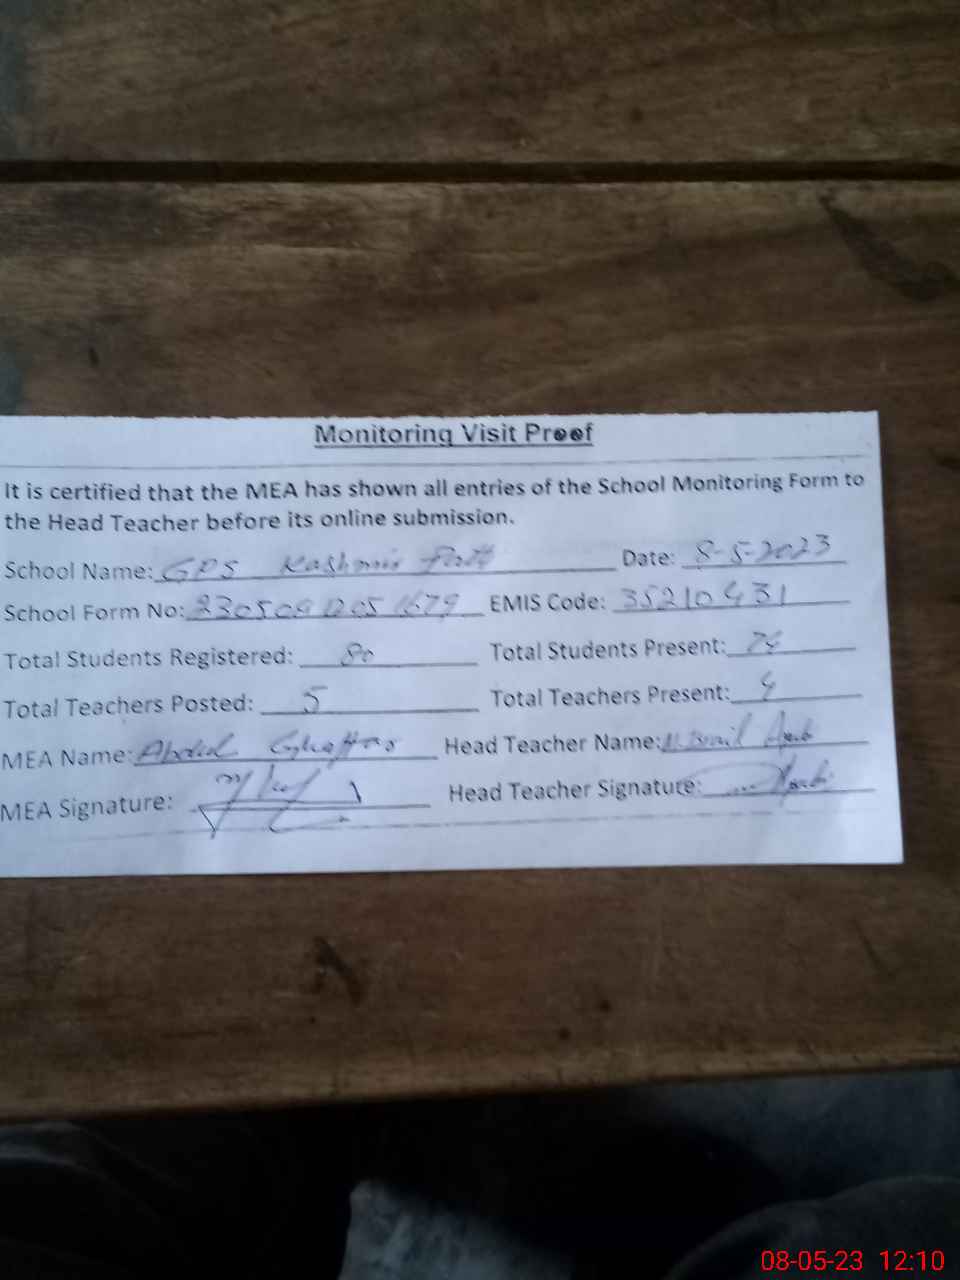 Monitoring Visit Proof
It is certified that the MEA has shown all entries of the School Monitoring Form to
the Head Teacher before its online submission.
School Name: GPS Kashmir Date: 8-5-2023
School Form No: EMIS Code: 35210431
Total Students Registered: 80 Total Students Present:
Total Teachers Posted: 5 Total Teachers Present: 4
MEA Name: Abdul Ghaffar Head Teacher Name:
MEA Signature: Head Teacher Signature:
08-05-23 12:10